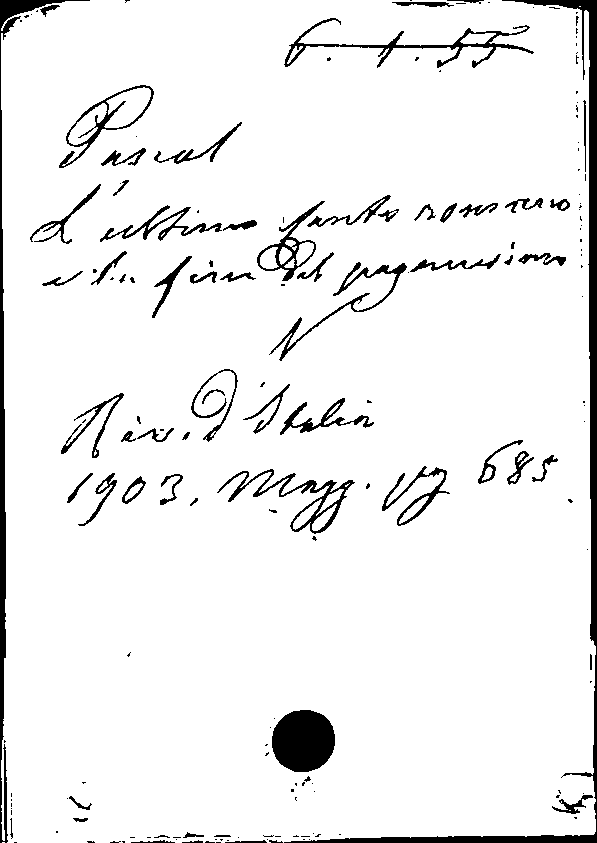 6. 1. 55
Pascal
L'ultimo canto romano
e la fine del paganesimo
Riv. d'Italia
1903, Magg. pag 685